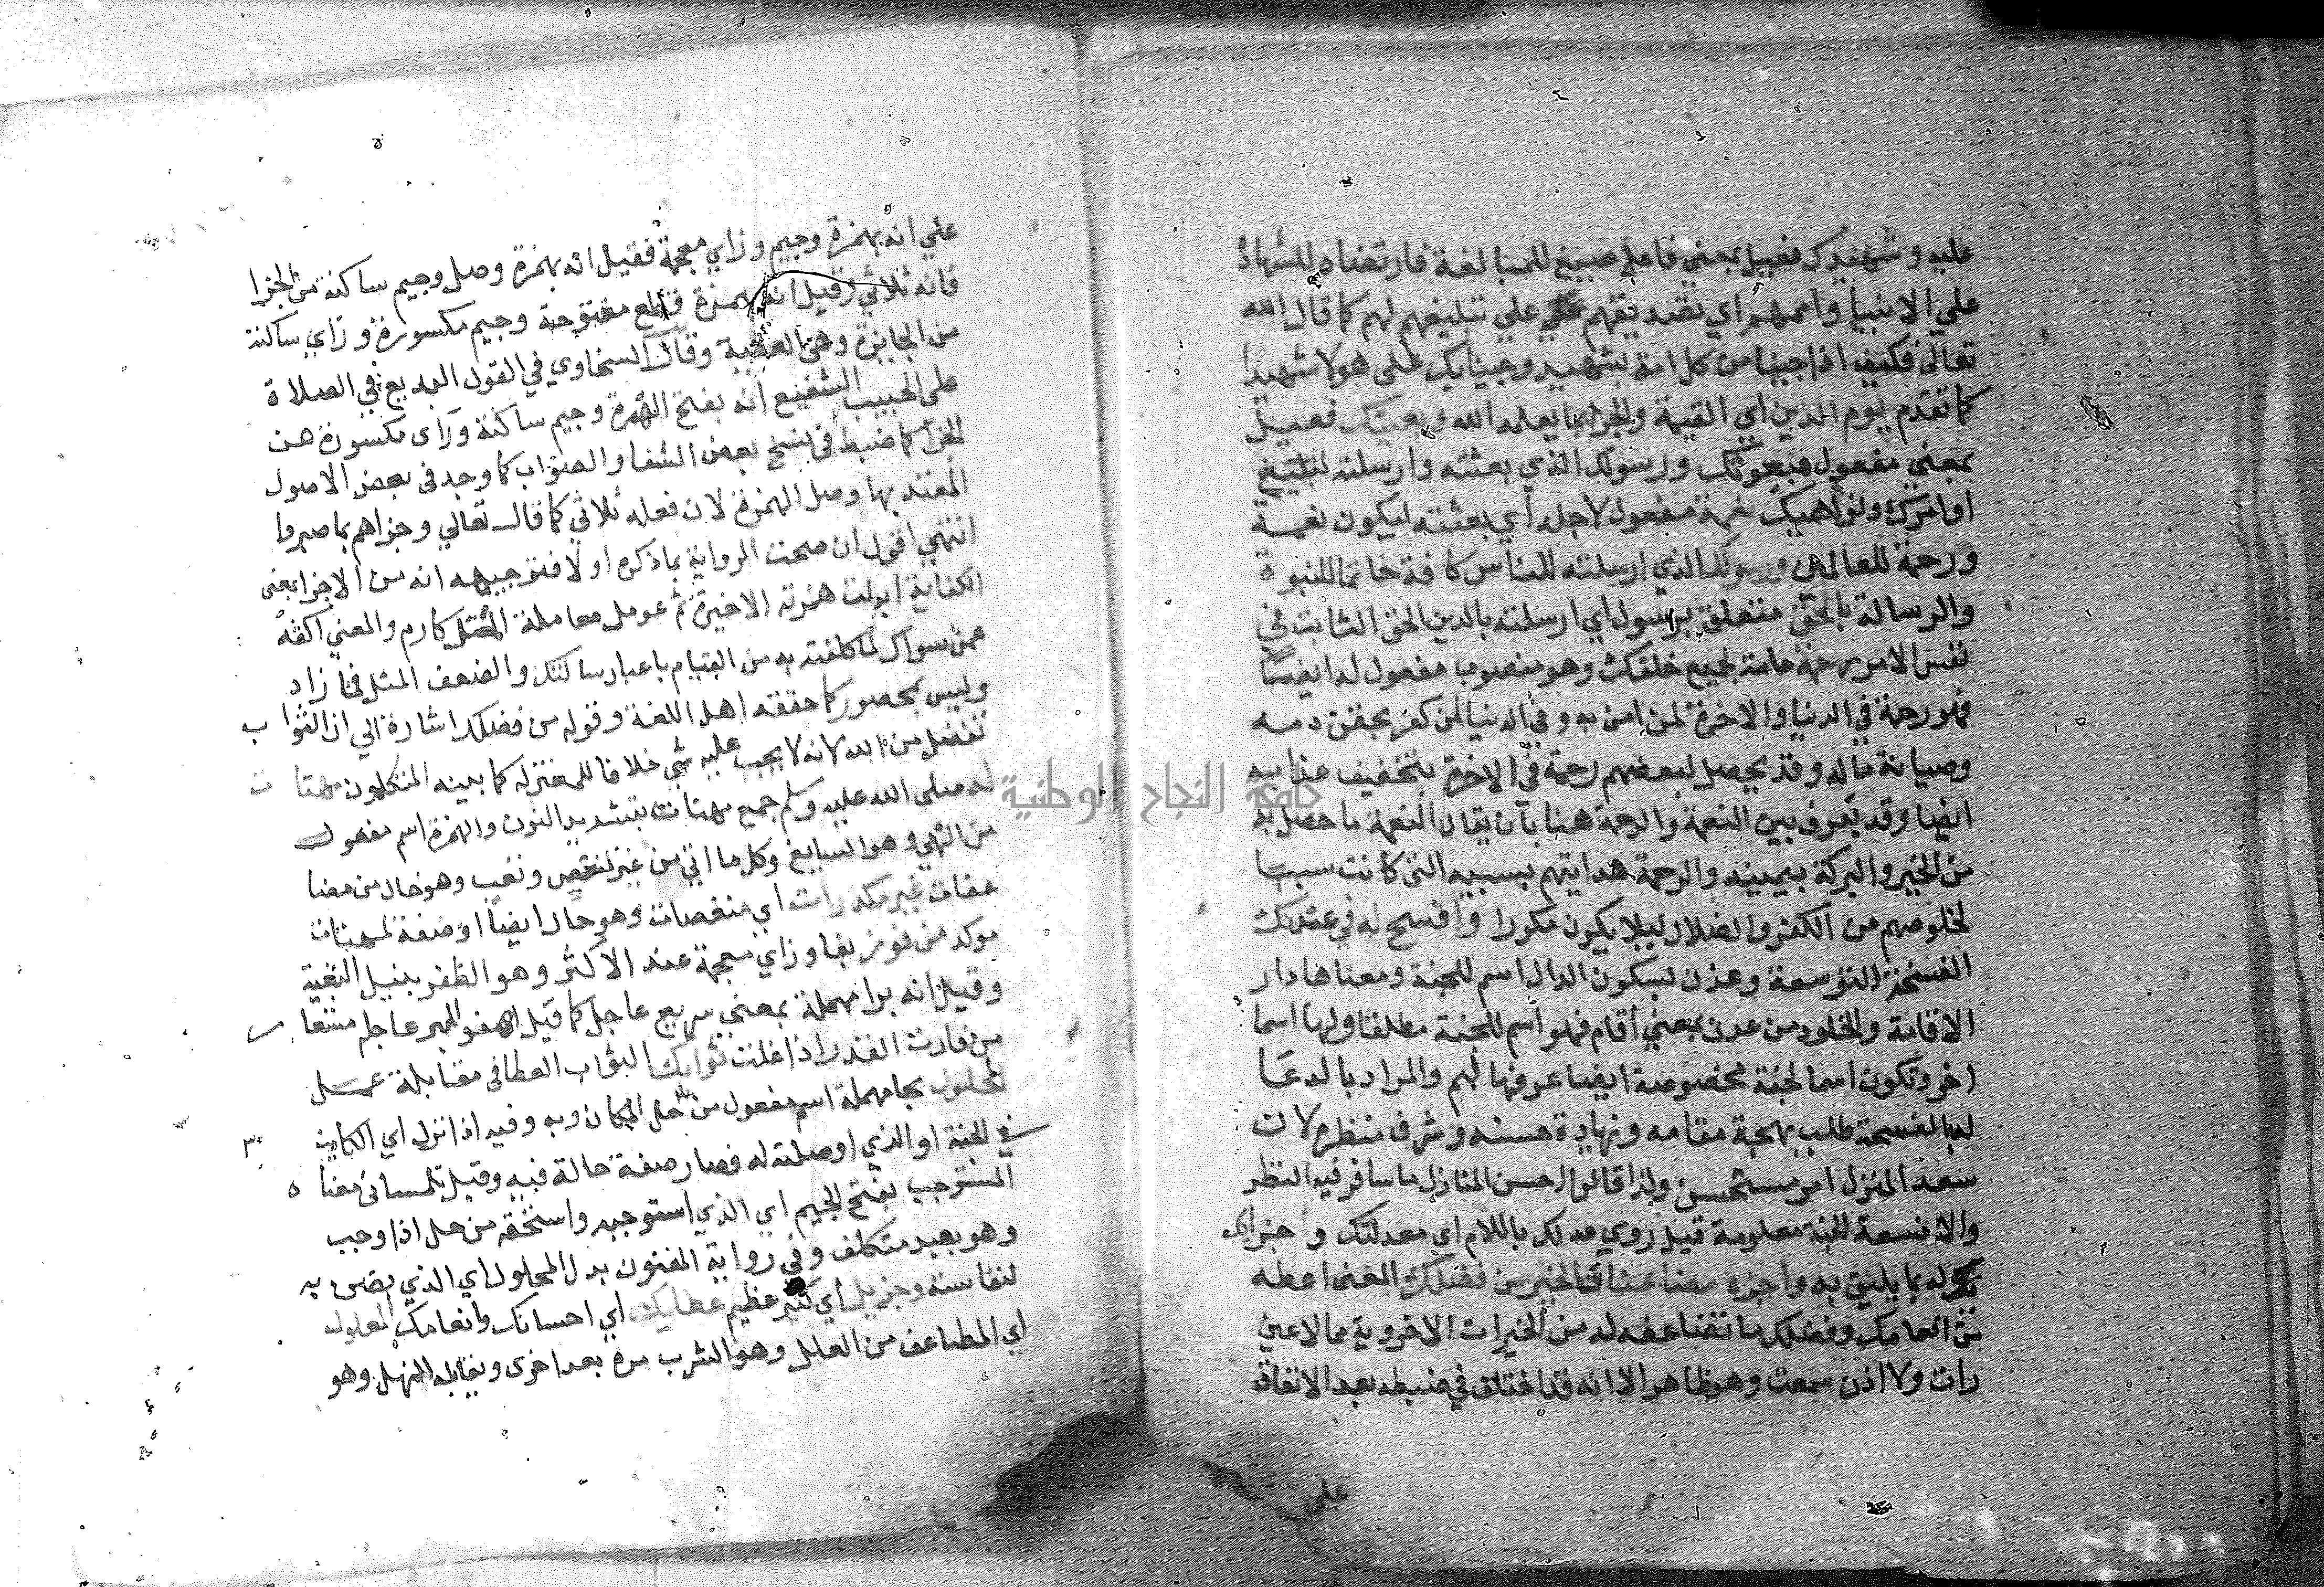 عليه وشهيدك فعيل بمعني فاعل صيغ للمبالغة فارتضاه للشهادة
علي الانبيا واممهم اي تصديقهم علي تبليغهم لهم كما قال الله
تعالى فكيف اذا جينا من كل امة بشهيد وجينا بك على هولا شهيدا
كما تقدم يوم الدين اي القيمة والجزا بما يعلمه الله وبعيثك فعيل
بمعني مفعول مبعوثك ورسولك الذي بعثته وارسلته لتبليغ
اوامرك ونواهيك نعمة مفعول لاجله اي بعثته ليكون نعمة
ورحمة للعالمين ورسولك الذي ارسلته للناس كافة خاتما للنبوة
والرسالة بالحق متعلق برسول اي ارسلته بالدين الحق الثابت في
نفس الامر رحمة عامة لجميع خلقك وهو منصوب مفعول له ايضا
فهو رحمة في الدنيا والاخرة لمن امن به وفي الدنيا لمن كفر بحقن دمه
وصيانة ماله وقد يحصل لبعضهم رحمة في الاخرة بتخفيف عذابه
ايضا وقد يفرق بين النعمة والرحمة هنا بان يقال النعمة ما حصل به
من الخير والبركة بيمينه والرحمة هدايتهم بسببه التي كانت سببا
لخلوصهم من الكفر والضلال ليلا يكون مكررا وافسح له في عدنك
الفسحة التوسعة وعدن بسكون الدال اسم للجنة ومعناها دار
الاقامة والخلود من عدن بمعني اقام فهو اسم للجنة مطلقا ولها اسما
اخر وتكون اسما لجنة مخصوصة ايضا عرفها لهم والمراد بالدعا
له بالفسحة طلب بهجة مقامه وزيادة حسنه وشرف منظره لان
سعد المنزل امر مستحسن ولذا قالوا احسن المنازل ما سافر فيه النظر
والا فسعة الجنة معلومة قيل روي عدلك باللام اي معدلتك وجزايك
له بما يليق به واجزه مضاعفات الخير من فضلك المعنى اعطه
من انعامك وفضلك ما تضاعفه له من الخيرات الاخروية مما لا عين
رات ولا اذن سمعت وهو ظاهر الا انه قد اختلف في ضبطه بعد الاتفاق
على
علي انه بهمزة وجيم وزاي معجمة فقيل انه بهمزة وصل وجيم ساكنة من الجزا
فانه ثلاثي وقيل انه بهمزة قطع مفتوحة وجيم مكسورة وزاي ساكنة
من الجايزة وهي العطية وقال السخاوي في القول البديع في الصلاة
على الحبيب الشفيع انه بفتح الهمزة وجيم ساكنة وزاى مكسورة من
الجزا كما ضبط في نسخ بعض الشفا والصواب كما وجد في بعض الاصول
المعتد بها وصل الهمزة لان فعله ثلاثي كما قال تعالي وجزاهم بما صبروا
انتهي اقول ان صحت الرواية بما ذكره اولا فتوجيهه انه من الاجزا بمعنى
الكفاية ابدلت همزته الاخيرة ثم عومل معاملة المعتل كارم والمعني اكفه
عمن سواك لما كلفته به من القيام باعبا رسالتك والضعف المثل فما زاد
وليس بمحصور كما حققه اهل اللغة وقوله من فضلك اشارة الي ان الثواب
تفضل من الله لانه لا يجب عليه شي خلافا للمعتزلة كما بينه المتكلمون مهنات
له صلى الله عليه وسلم جمع مهنات بتشديد النون والهمزة اسم مفعول
من الهني وهو السايغ وكل ما اتي من غير تنغيص وتعب وهو حال من مضا
عفات غير مكدرات اي منغصات وهو حال ايضا او صفة لمهنات
موكد من فوز بفا وزاي معجمة عند الاكثر وهو الظفر بنيل البغية
وقيل انه برا مهملة بمعني سريع عاجل كما قيل اهنو البر عاجل مستعار
من فارت القدر اذا غلت ثوابك الثواب العطا في مقابلة عمل
المحلول بحا مهملة اسم مفعول من حل المكان وبه وفيه اذا نزل اي الكاين
في الجنة او الذي اوصلته له فصار صفة حالة فيه وقيل تلمساني معناه
المستوجب بفتح الجيم اي الذي استوجبه واستحقه من حل اذا وجب
وهو بعيد متكلف وفي رواية المضنون بدل المحلول اي الذي يضن به
لنفاسته وجزيل اي كثير عظيم عطايك اي احسانك وانعامك المعلول
اي المضاعف من العلل وهو الشرب مرة بعد اخرى ويقابله النهل وهو
جامعة النجاح الوطنية